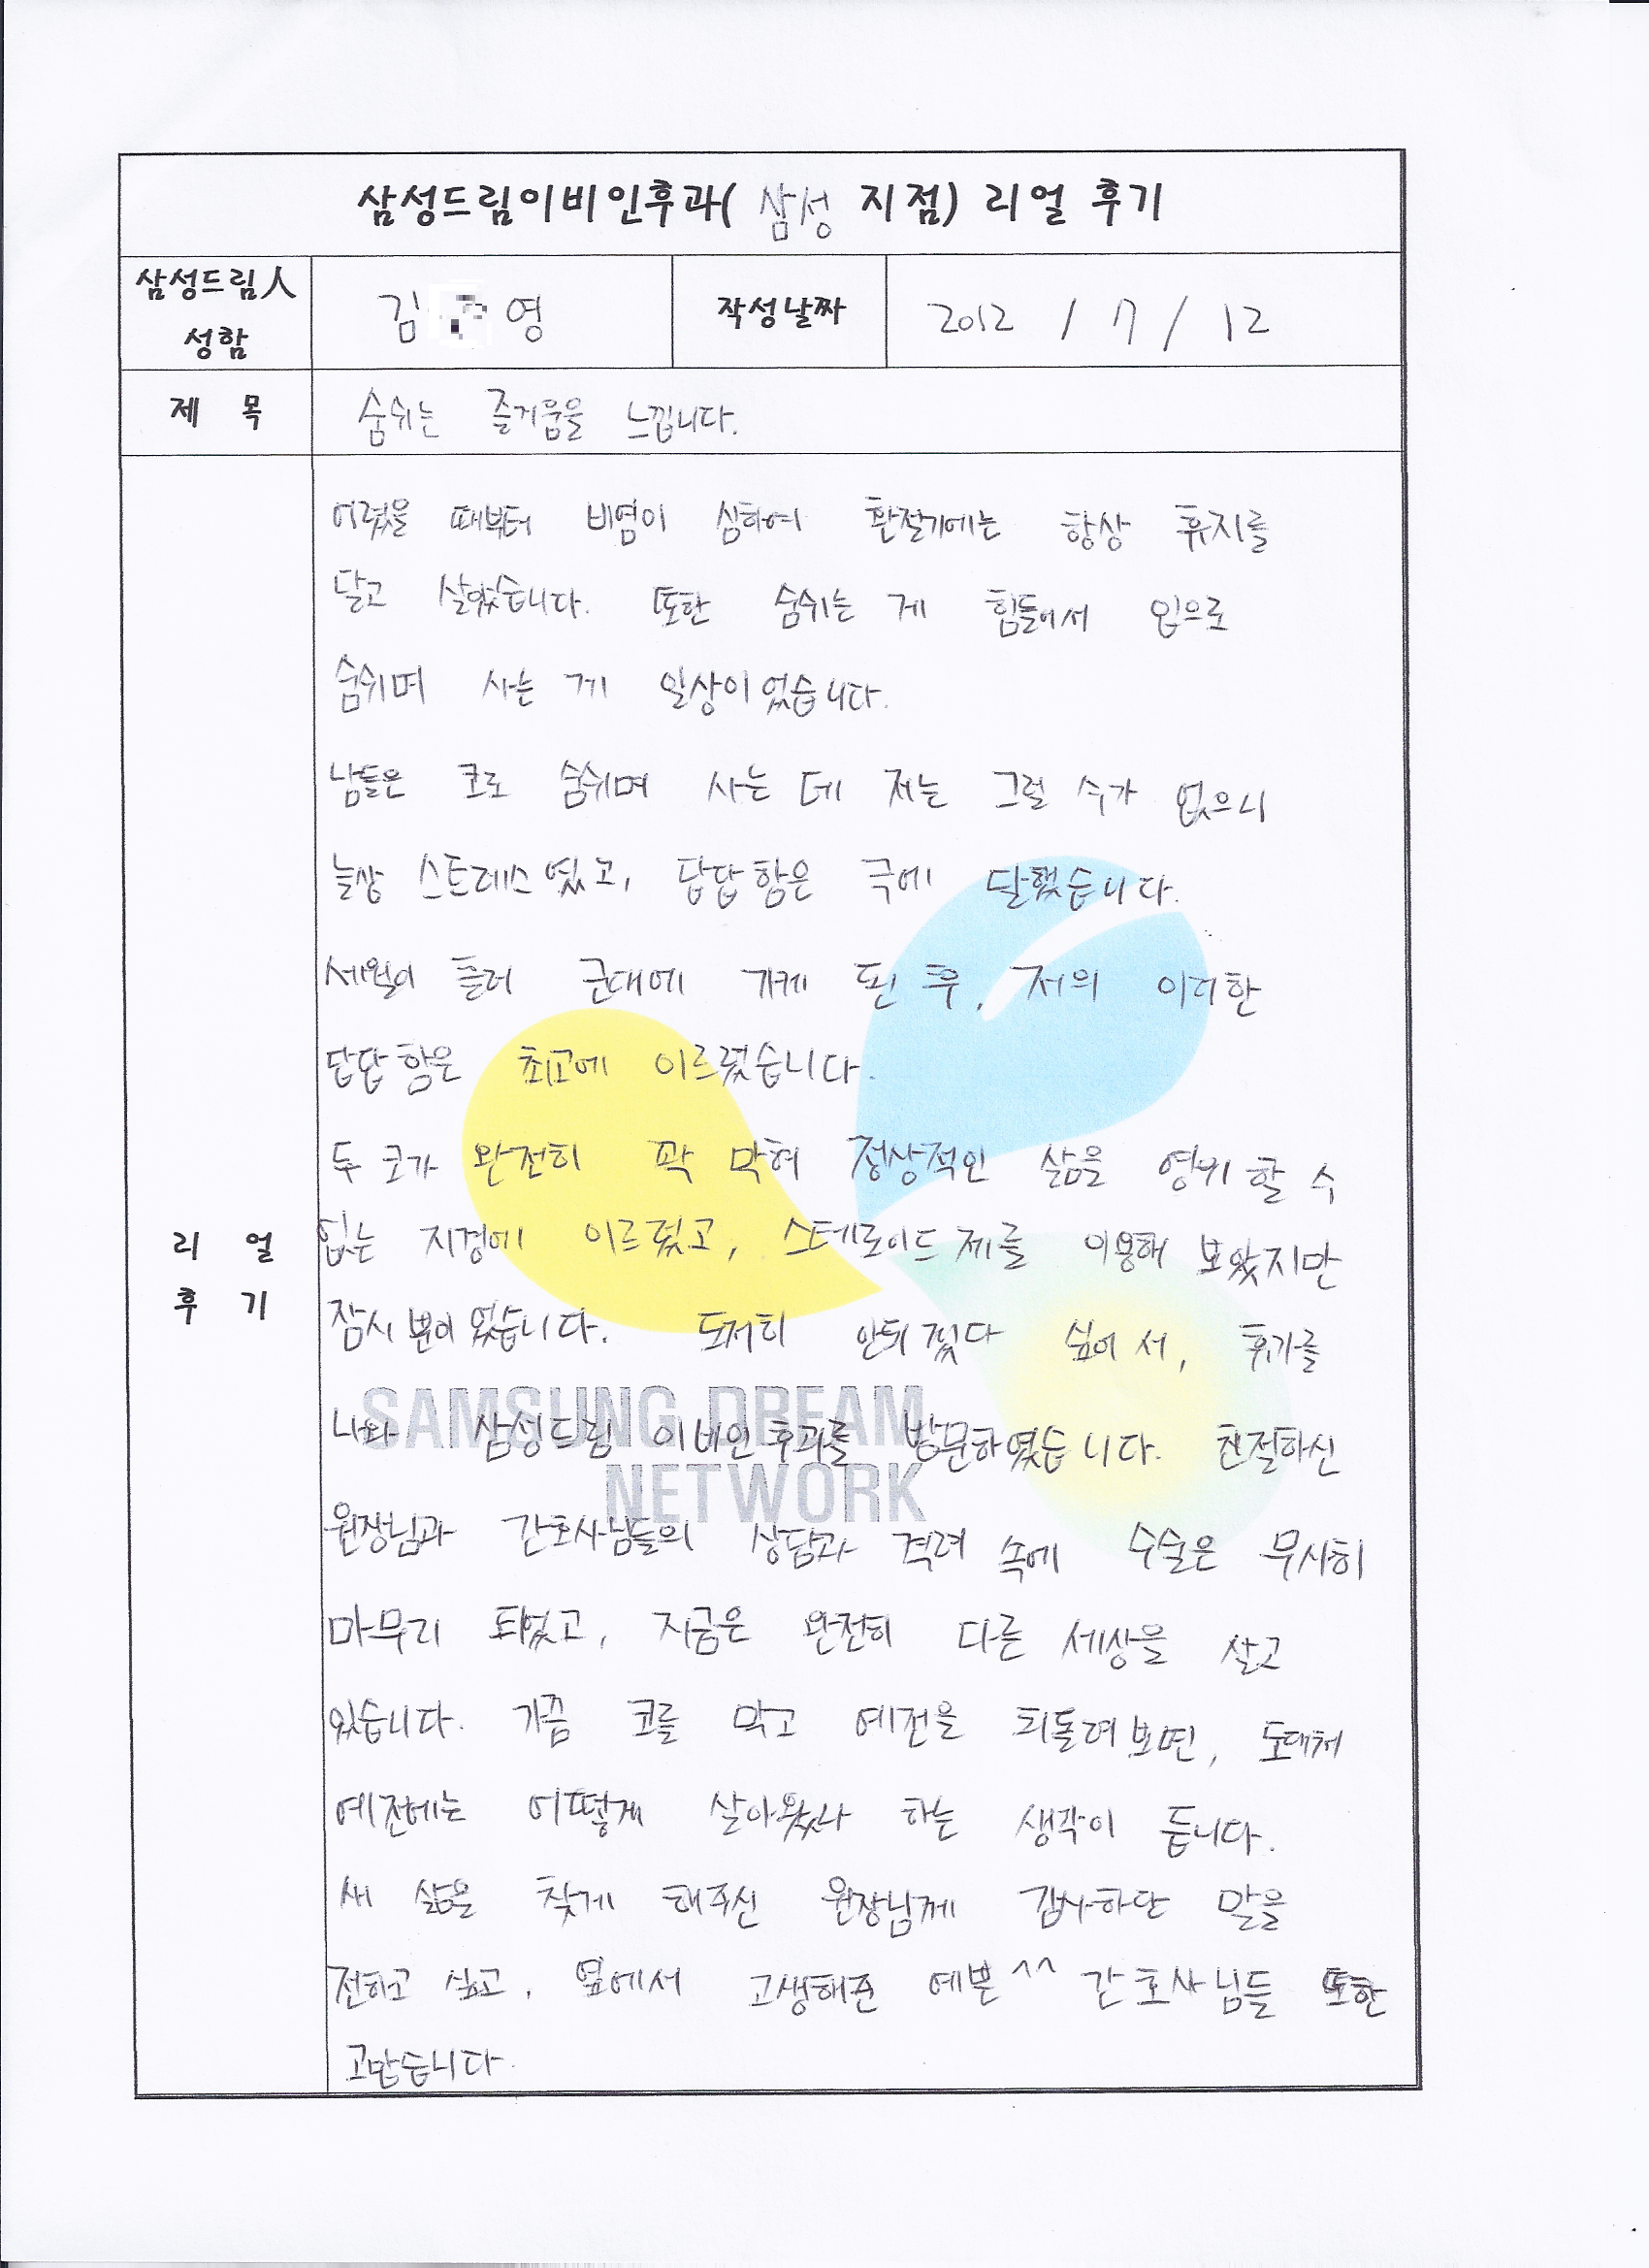 삼성드림이비인후과( 삼성 지점) 리얼 후기
삼성드림人 성함
김 영
작성날짜
2012 / 7 / 12
제 목
숨쉬는 즐거움을 느낍니다.
리 얼
후 기
어렸을 때부터 비염이 심하여 환절기에는 항상 휴지를
달고 살았습니다. 또한 숨쉬는 게 힘들어서 입으로
숨쉬며 사는 게 일상이었습니다.
남들은 코로 숨쉬며 사는 데 저는 그럴 수가 없으니
늘상 스트레스였고, 답답함은 극에 달했습니다.
세월이 흘러 군대에 가게 된 후, 저의 이러한
답답함은 최고에 이르렀습니다.
두 코가 완전히 꽉 막혀 정상적인 삶을 영위할 수
없는 지경에 이르렀고, 스테로이드제를 이용해 보았지만
잠시뿐이었습니다. 도저히 안되겠다 싶어서, 휴가를
나와 삼성드림 이비인후과를 방문하였습니다. 친절하신
원장님과 간호사님들의 상담과 격려 속에 수술은 무사히
마무리 되었고, 지금은 완전히 다른 세상을 살고
있습니다. 가끔 코를 막고 예전을 되돌려보면, 도대체
예전에는 어떻게 살아왔나 하는 생각이 듭니다.
새 삶을 찾게 해주신 원장님께 감사하단 말을
전하고 싶고, 옆에서 고생해준 예쁜^^ 간호사님들 또한
고맙습니다.
SAMSUNG DREAM
NETWORK